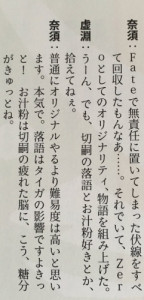 奈須：Fateで無責任に置いてしまった伏線をすべ
て回収したもんなあ……。それでいて、Zer
oとしてのオリジナリティ、物語を組み上げた。
虚淵：うーん、でも、切嗣の落語とお汁粉好きとか、
拾えてねぇ。
奈須：普通にオリジナルやるより難易度は高いと思い
ます。本気で。落語はタイガの影響ですよきっ
と！　お汁粉は切嗣の疲れた脳に、こう、糖分
がきゅっとね。